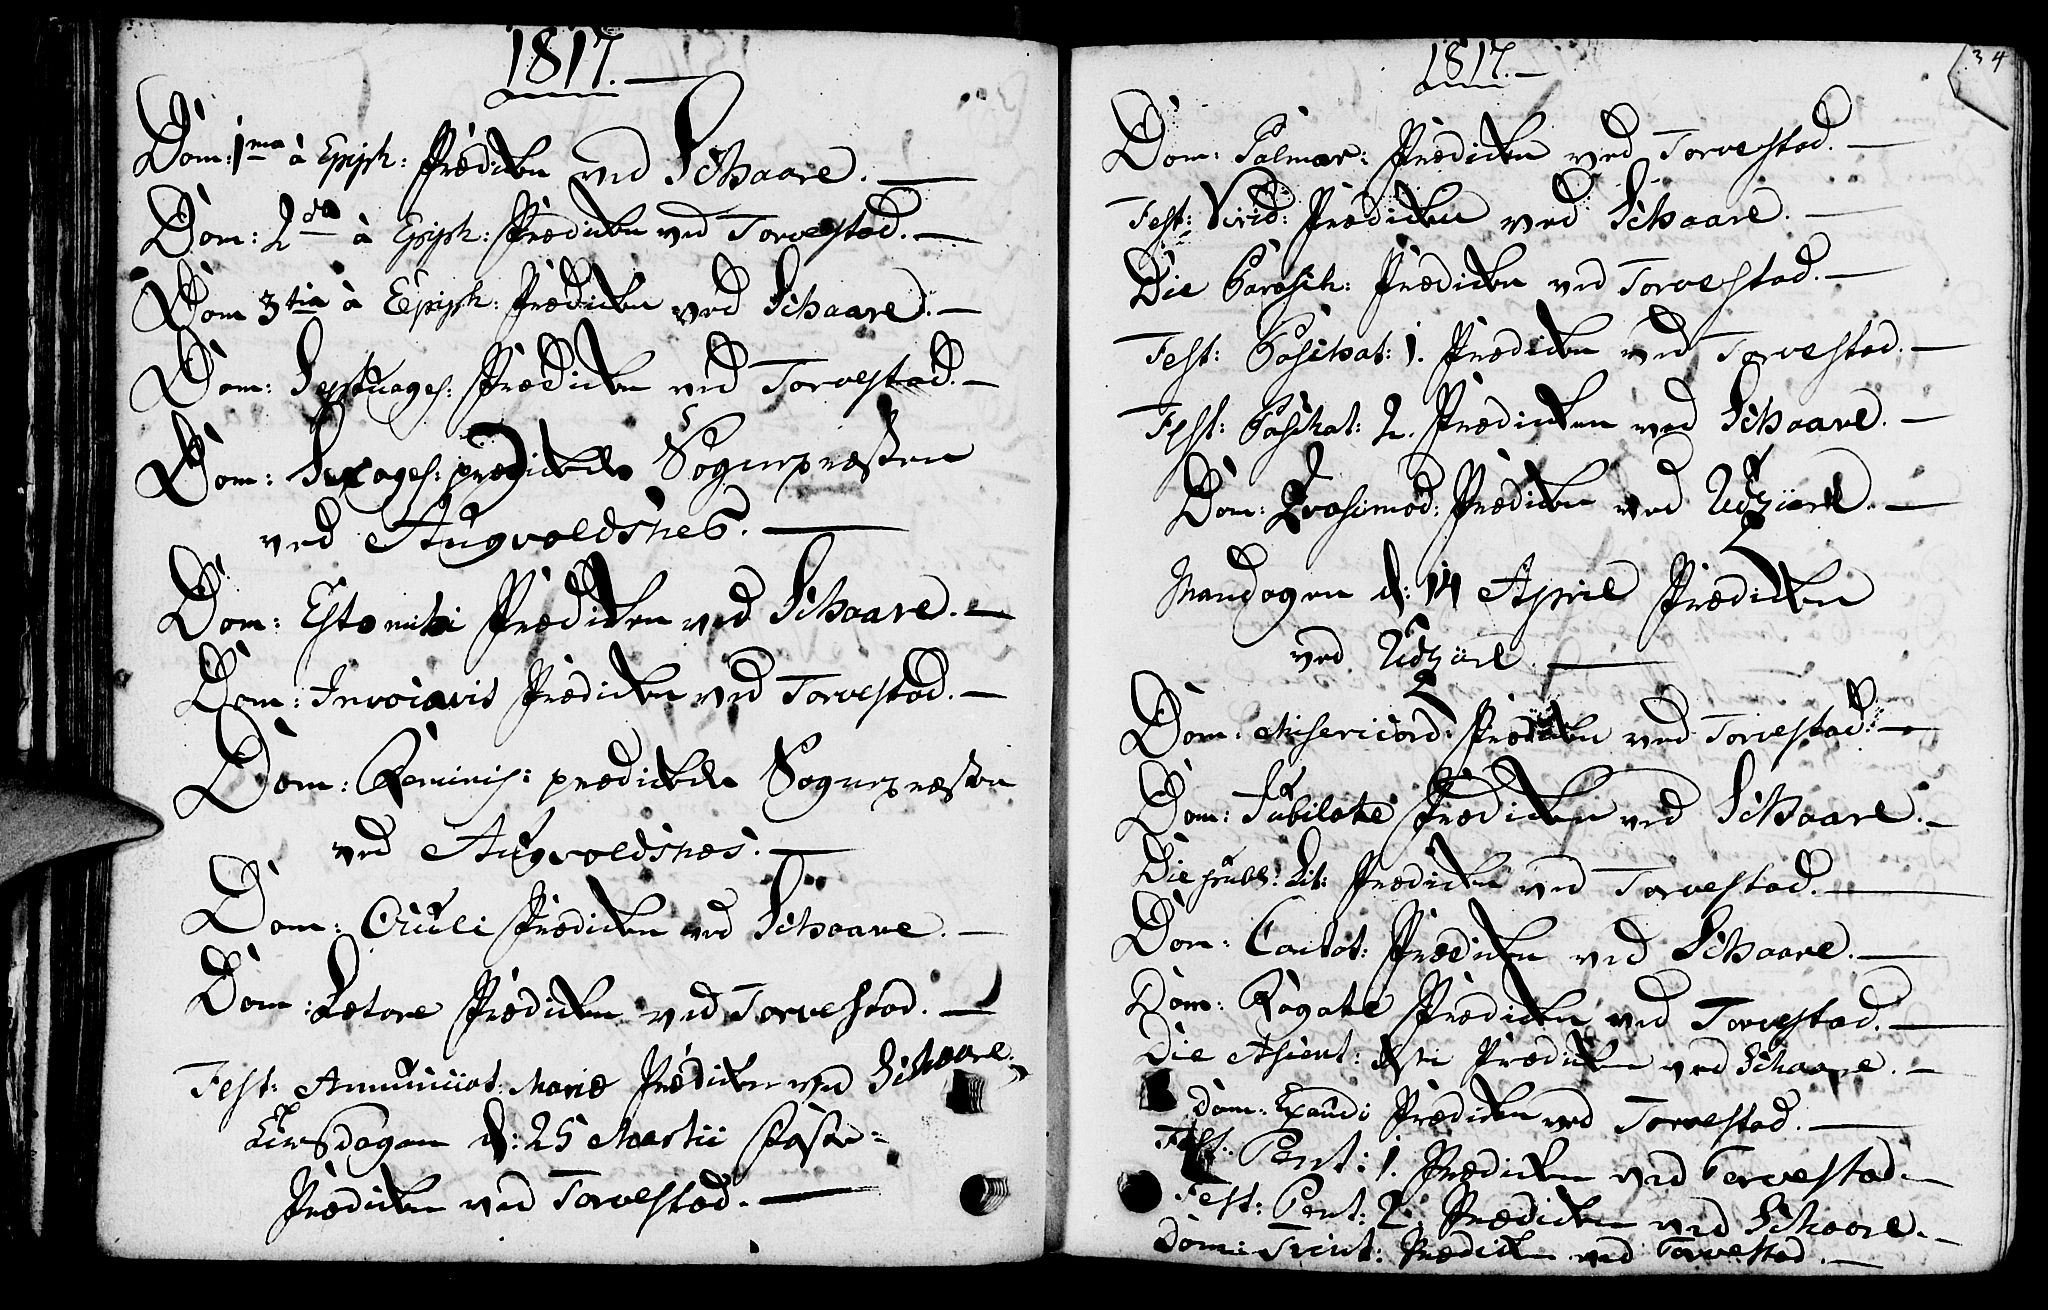 1817.
Dom: 1ma à Epiph: Prædicken ved Schaare.
Dom: 2da à Epiph: Prædicken ved Torvestad.
Dom 3tia à Epiph: Prædicken ved Schaare.
Dom: Septuages: Prædicken ved Torvestad.
Dom: Sexages: prædickede Sognepræsten
ved Augvoldsnes.
Dom: Estomihi Prædicken ved Schaare.
Dom: Invocavit Prædicken ved Torvestad.
Dom: Reminis: prædickede Sognepræsten
ved Augvoldsnes.
Dom: Oculi Prædicken ved Schaare.
Dom: Lætare Prædicken ved Torvestad.
Fest: Annunciat: Mariæ Prædicken ved Schaare.
Tirsdagen d: 25 Martii Faste=
Prædicken ved Torvestad.
1817.
34
Dom: Palmar: Prædicken ved Torvestad.
Fest: Virid: Prædicken ved Schaare.
Die Parasch: Prædicken ved Torvestad.
Fest: Paschat: 1. Prædicken ved Torvestad.
Fest: Paschat: 2. Prædicken ved Schaare.
Dom: Qvasimod: Prædicken ved Udziæl.
Mandagen d: 14 April Prædicken
ved Udziæl.
Dom: Misericord: Prædicken ved Torvestad.
Dom: Jubilate Prædicken ved Schaare.
Die publ: Lit: Prædicken ved Torvestad.
Dom: Cantat: Prædicken ved Schaare.
Dom: Rogate Prædicken ved Torvestad.
Die Ascent: Xsti Prædicken ved Schaare.
Dom: Exaudi Prædicken ved Torvestad.
Fest: Pent: 1. Prædicken ved Torvestad.
Fest: Pent: 2. Prædicken ved Schaare.
Dom: Trinit: Prædicken ved Torvestad.